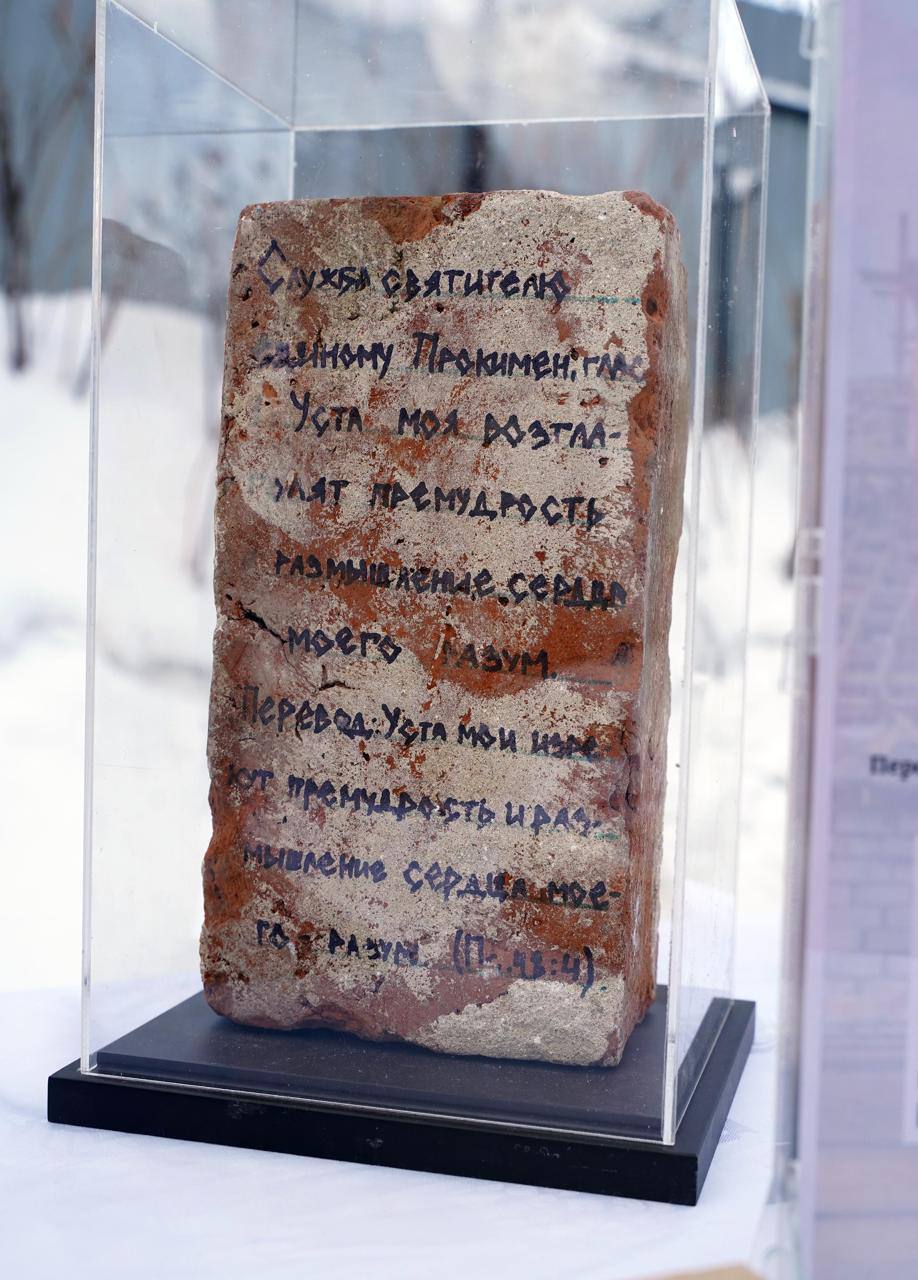 Служба святителю
единому Прокимен, глас
Уста моя возгла-
олят премудрость
размышление сердца
моего разум.
Перевод: Уста мои изре-
кут премудрость и раз-
мышление сердца мое-
го - разум. (Пс. 48:4)
Пере